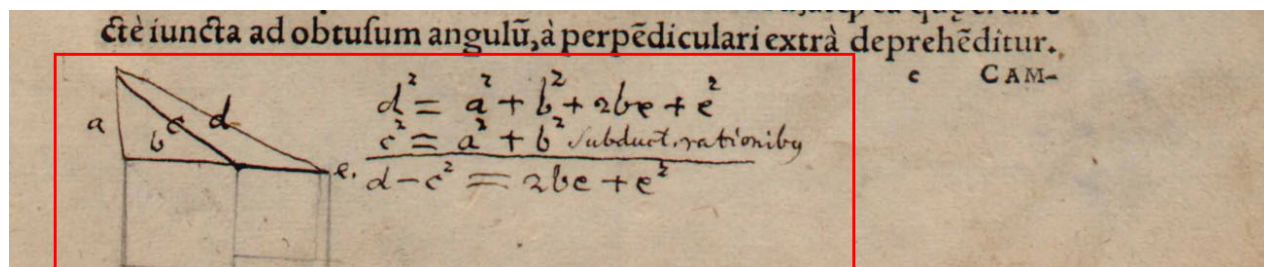 ctè iuncta ad obtusum angulū, à perpēdiculari extrà deprehēditur.
c CAM-
a b c d e.
d² = a² + b² + 2be + e²
c² = a² + b² Subduct. rationibus
d - c² = 2be + e²